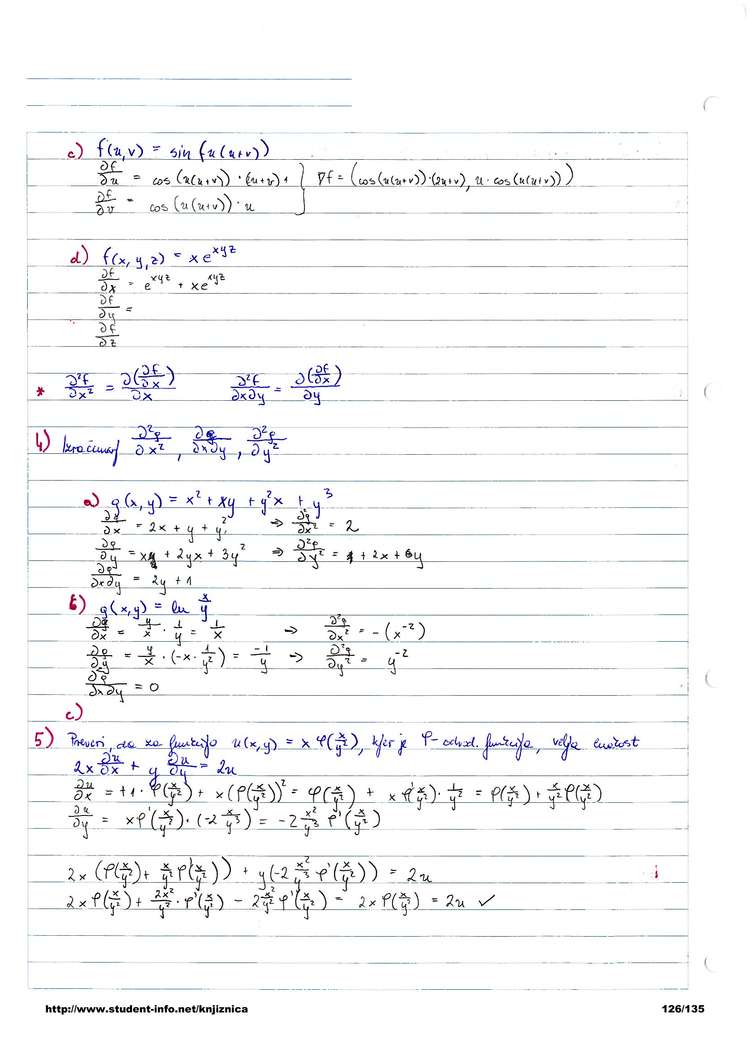 c) f(u,v) = sin(u(u+v))
∂f/∂u = cos(u(u+v))·(u+v)+ } ∇f = (cos(u(u+v))·(2u+v), u·cos(u(u+v)))
∂f/∂v = cos(u(u+v))·u
d) f(x,y,z) = x e^xyz
∂f/∂x = e^xyz + xe^xyz
∂f/∂y =
∂f/∂z
* ∂²f/∂x² = ∂(∂f/∂x)/∂x ∂²f/∂x∂y = ∂(∂f/∂x)/∂y
4) Izračunaj ∂²g/∂x², ∂g/∂x∂y, ∂²g/∂y²
a) g(x,y) = x² + xy + y²x + y³
∂g/∂x = 2x + y + y² ⇒ ∂²g/∂x² = 2
∂g/∂y = x + 2yx + 3y² ⇒ ∂²g/∂y² = 2x + 6y
∂g/∂x∂y = 2y + 1
b) g(x,y) = ln x/y
∂g/∂x = y/x · 1/y = 1/x ⇒ ∂²g/∂x² = -(x⁻²)
∂g/∂y = y/x · (-x · 1/y²) = -1/y ⇒ ∂²g/∂y² = y⁻²
∂g/∂x∂y = 0
c)
5) Preveri, da za funkcijo u(x,y) = x φ(x/y²), kjer je φ - odvod. funkcija, velja enakost
2x ∂u/∂x + y ∂u/∂y = 2u
∂u/∂x = +1·φ(x/y²) + x(φ(x/y²))² = φ(x/y²) + xφ'(x/y²)·1/y² = φ(x/y²) + x/y² φ(x/y²)
∂u/∂y = xφ'(x/y²)·(-2 x/y³) = -2 x²/y³ φ'(x/y²)
2x(φ(x/y²) + x/y² φ'(x/y²)) + y(-2 x²/y³ φ'(x/y²)) = 2u
2xφ(x/y²) + 2x²/y² · φ'(x/y²) - 2 x²/y² φ'(x/y²) = 2xφ(x/y²) = 2u ✓
http://www.student-info.net/knjiznica 126/135